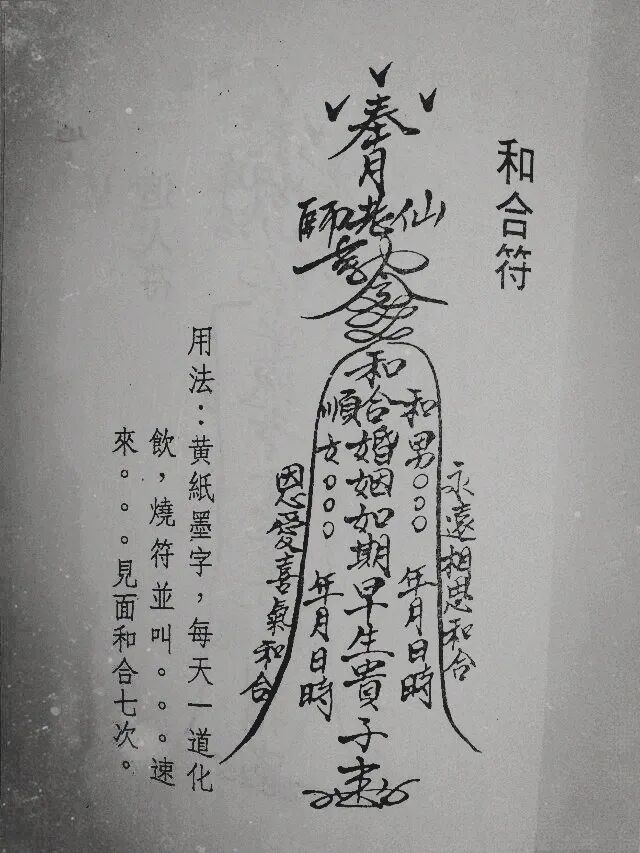 和合符
奉
月
仙老師
和合婚姻如期早生貴子速
和男○○○　年月日時
順女○○○　年月日時
永遠相思和合
恩愛喜氣和合
用法：黃紙墨字，每天一道化
飲，燒符並叫。。。速
來。。。見面和合七次。